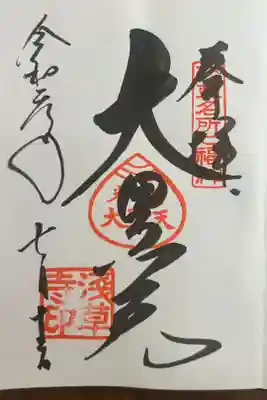 奉拝
浅草名所七福神
大黒天
令和二年
七月十三日
浅草
寺印